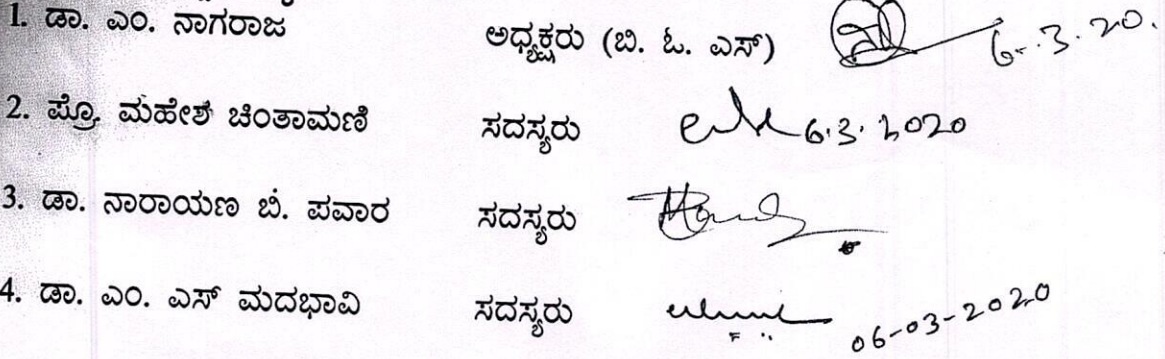 1. ಡಾ. ಎಂ. ನಾಗರಾಜ ಅಧ್ಯಕ್ಷರು (ಬಿ. ಓ. ಎಸ್) 6.3.20.
2. ಪ್ರೊ. ಮಹೇಶ ಚಿಂತಾಮಣಿ ಸದಸ್ಯರು 6.3.2020
3. ಡಾ. ನಾರಾಯಣ ಬಿ. ಪವಾರ ಸದಸ್ಯರು
4. ಡಾ. ಎಂ. ಎಸ್ ಮದಭಾವಿ ಸದಸ್ಯರು 06-03-2020